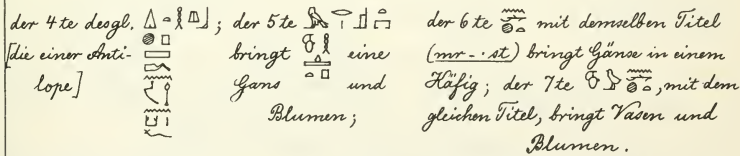 der 4te desgl.
[die einer Anti-
lope]
; der 5te
bringt eine
Gans und
Blumen;
der 6te mit demselben Titel
(mr-·st) bringt Gänse in einem
Käfig; der 7te , mit dem
gleichen Titel, bringt Vasen und
Blumen.